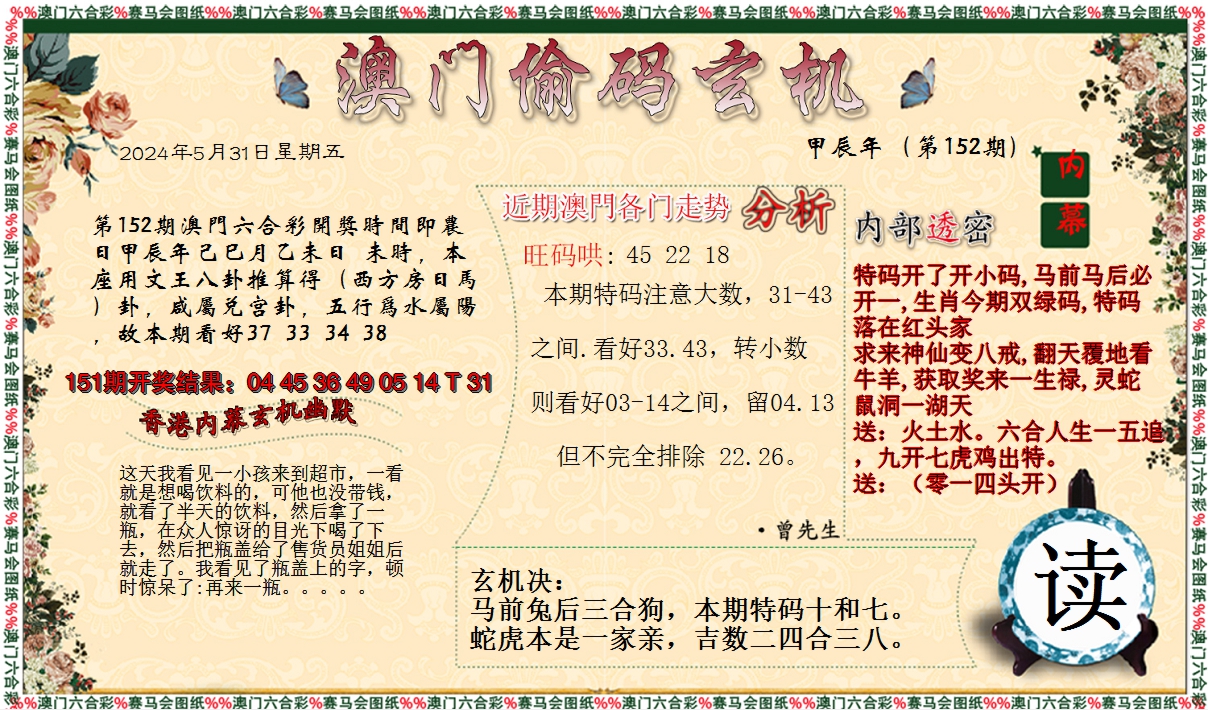 %%澳门六合彩%赛马会图纸%%澳门六合彩%赛马会图纸%%澳门六合彩%赛马会图纸%%澳门六合彩%赛马会图纸%%澳门六合彩%赛马会图纸%%澳门六合彩%赛马会图纸%%
澳门偷码玄机
2024年5月31日星期五
甲辰年（第152期）
第152期澳門六合彩開獎時間即農
日甲辰年己巳月乙未日 未時，本
座用文王八卦推算得（西方房日馬
）卦，咸屬兑宫卦，五行爲水屬陽
，故本期看好37 33 34 38
151期开奖结果：04 45 36 49 05 14 T 31
香港内幕玄机幽默
这天我看见一小孩来到超市，一看
就是想喝饮料的，可他也没带钱，
就看了半天的饮料，然后拿了一
瓶，在众人惊讶的目光下喝了下
去，然后把瓶盖给了售货员姐姐后
就走了。我看见了瓶盖上的字，顿
时惊呆了:再来一瓶。。。。。
近期澳門各门走势 分析
旺码哄: 45 22 18
本期特码注意大数，31-43
之间.看好33.43，转小数
则看好03-14之间，留04.13
但不完全排除 22.26。
·曾先生
玄机决：
马前兔后三合狗，本期特码十和七。
蛇虎本是一家亲，吉数二四合三八。
内幕
内部透密
特码开了开小码,马前马后必
开一,生肖今期双绿码,特码
落在红头家
求来神仙变八戒,翻天覆地看
牛羊,获取奖来一生禄,灵蛇
鼠洞一湖天
送：火土水。六合人生一五追
，九开七虎鸡出特。
送：（零一四头开）
读
%%澳门六合彩%赛马会图纸%%澳门六合彩%赛马会图纸%%澳门六合彩%赛马会图纸%%澳门六合彩%赛马会图纸%%澳门六合彩%赛马会图纸%%澳门六合彩%赛马会图纸%%